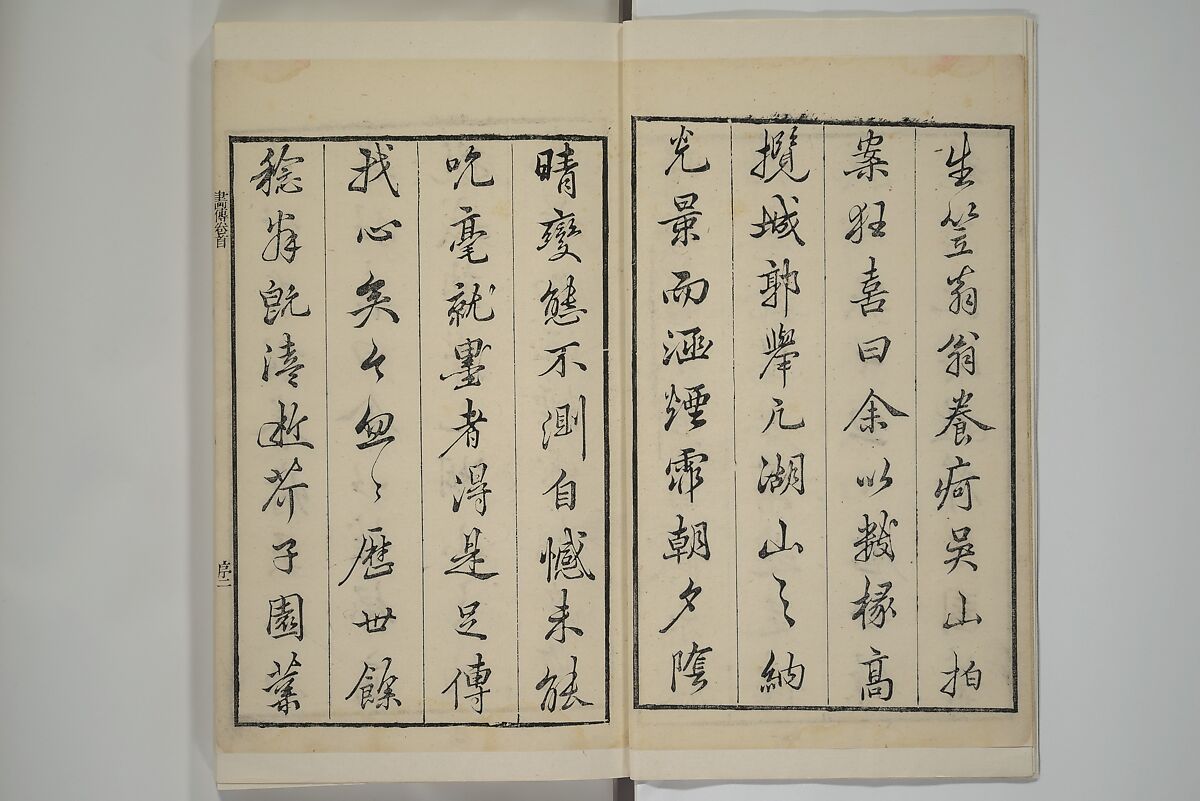 生笠翁翁養疴吳山拍
案狂喜曰余以數椽高
攬城郭擧凡湖山之納
光景而涵煙霏朝夕陰
晴變態不測自憾未能
吮毫就墨者得是足傳
我心矣々忽々歷世餘
稔翁旣溘逝芥子園業
畫傳卷首
序二